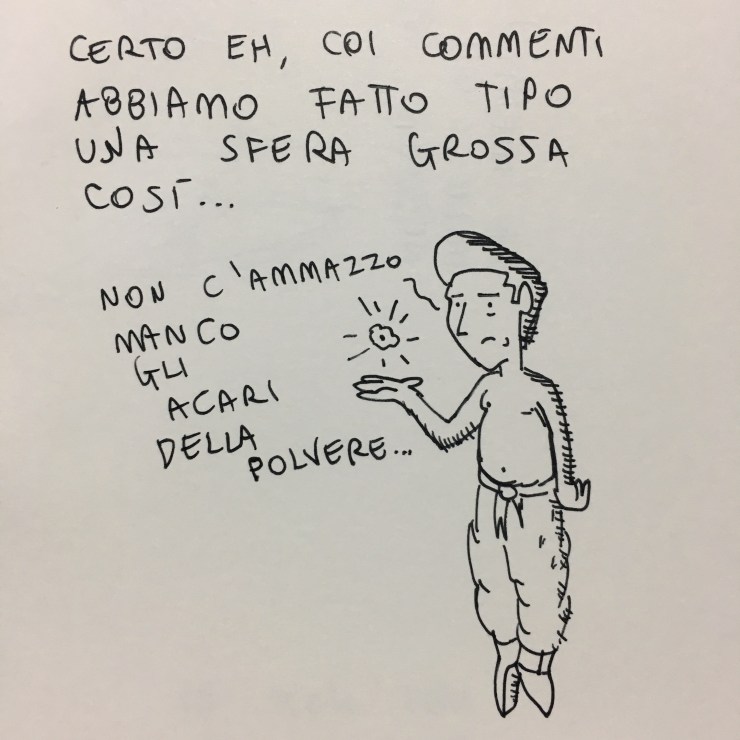 CERTO EH, COI COMMENTI
ABBIAMO FATTO TIPO
UNA SFERA GROSSA
COSÌ...
NON C'AMMAZZO
MANCO
GLI
ACARI
DELLA
POLVERE...